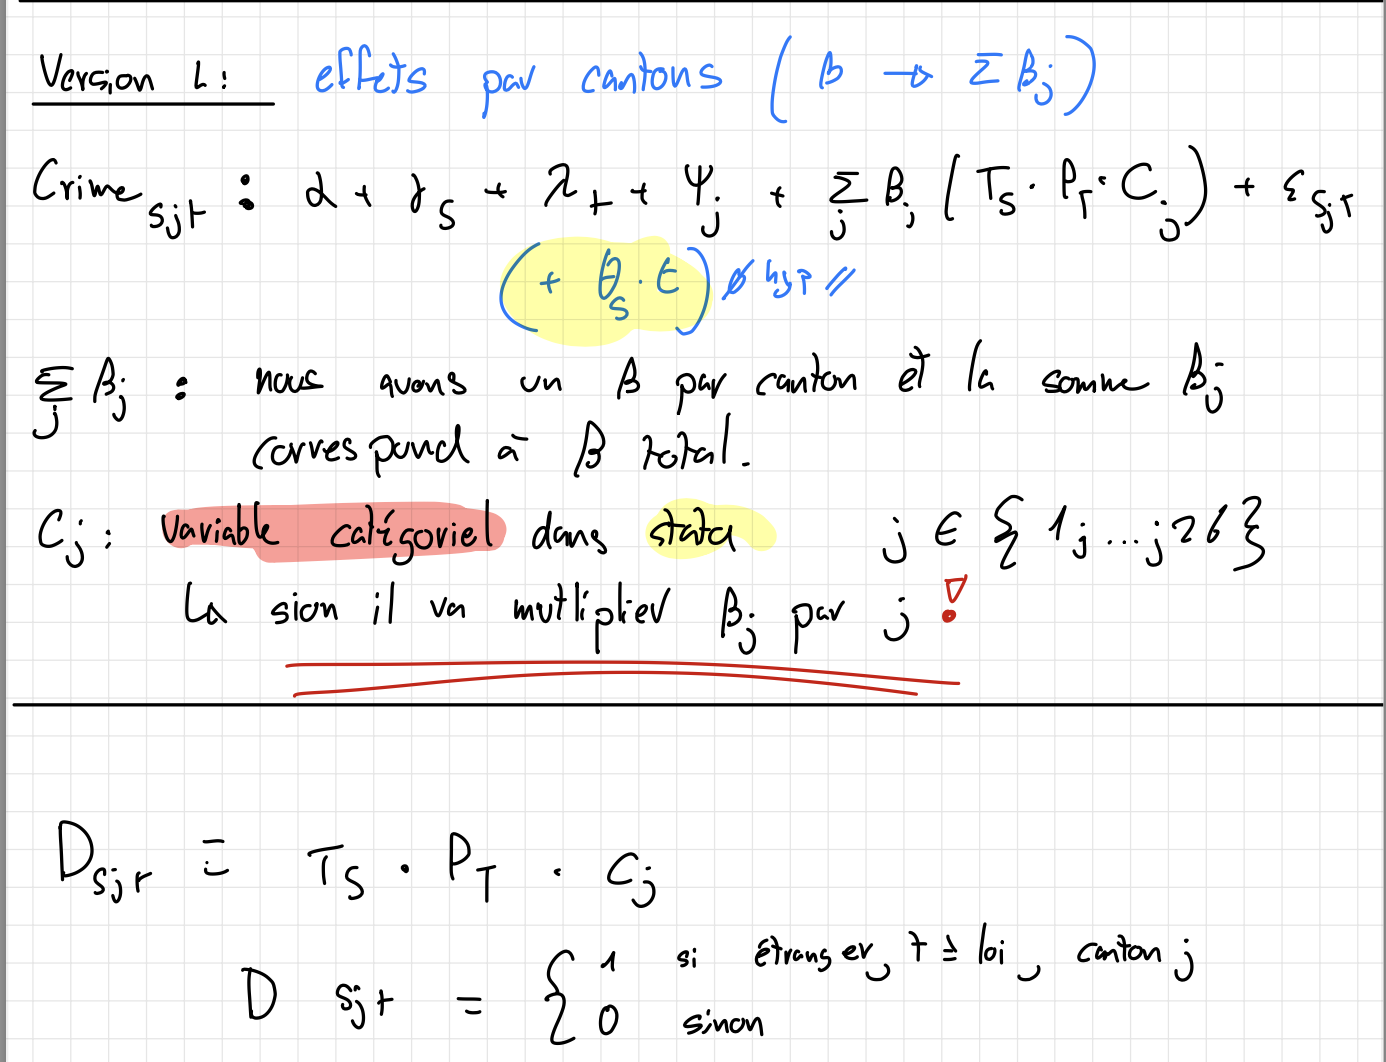 Version 1: effets par cantons ( β → Σ βj )
Crime sjt : α + γs + λt + ψj + Σj βj ( Ts · Pt · Cj ) + εsjt
( + θs · t ) ∅ hyp //
Σj βj : nous avons un β par canton et la somme βj
correspond à β total.
Cj : variable catégoriel dans stata j ∈ { 1 ; ... ; 26 }
La sion il va mutliplier βj par j !
Dsjt = Ts · PT · Cj
D sjt = { 1 si étranger, t ≥ loi, canton j
0 sinon